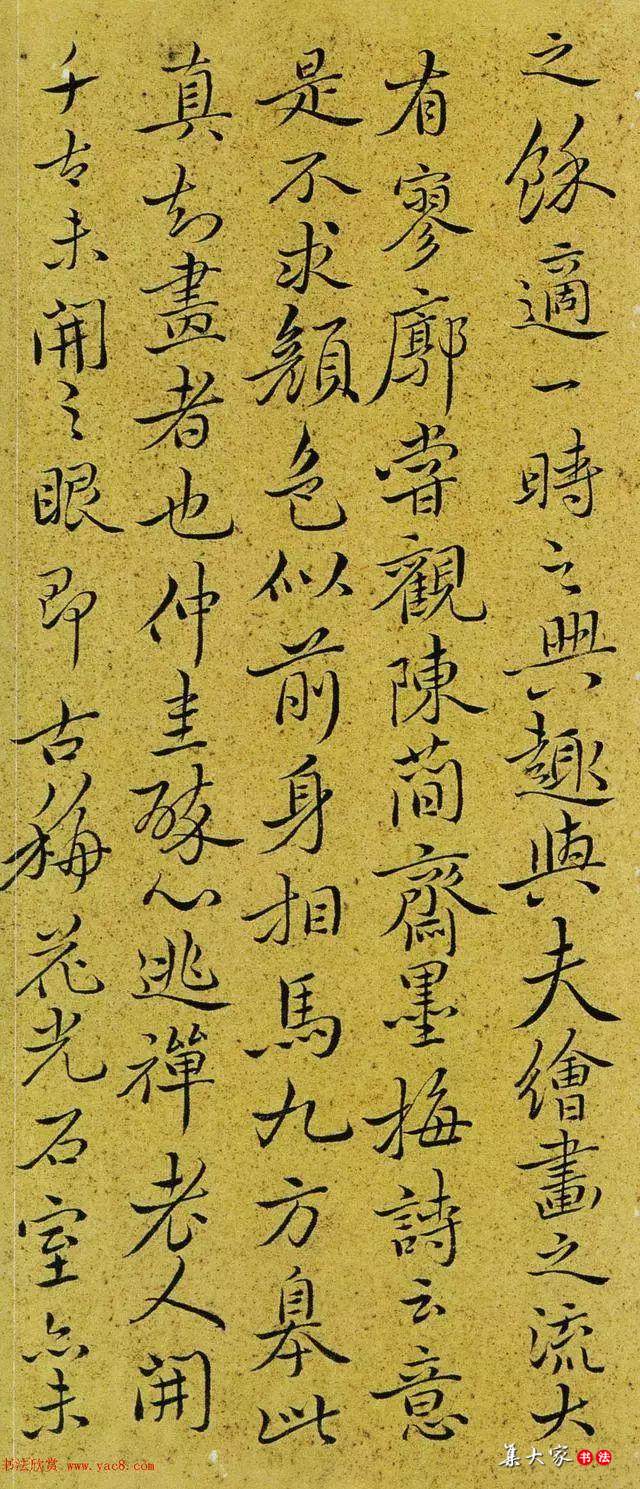 之餘適一時之興趣與夫繪畫之流大
有寥廓嘗觀陳簡齋墨梅詩云意
是不求顏色似前身相馬九方皋此
真知畫者也仲圭酸心逃禪老人開
千古未開之眼即古梅花光石室亦未
集大家 书法
书法欣赏 www.yac8.com